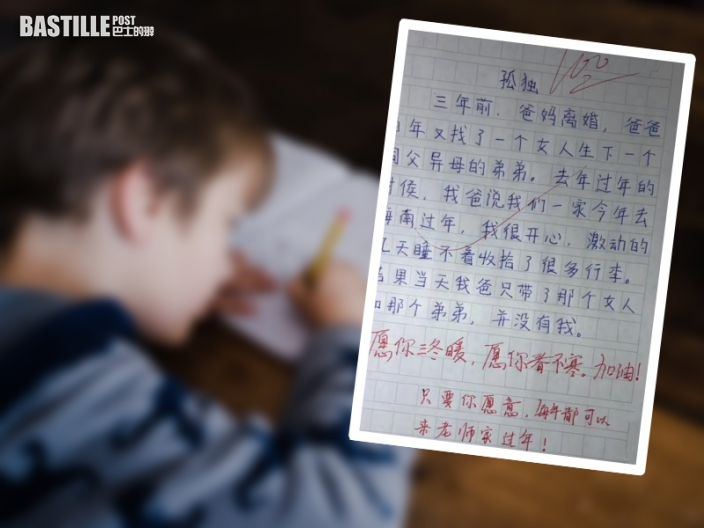 BASTILLE POST
巴士的報
100
孤独
三年前,爸妈离婚,爸爸
年又找了一个女人生下一个
同父异母的弟弟。去年过年的
时侯,我爸说我们一家今年去
海南过年,我很开心,激动的
几天睡不着收拾了很多行李。
结果当天我爸只带了那个女人
和那个弟弟,并没有我。
愿你三冬暖,愿你春不寒。加油!
只要你愿意,每年都可以
来老师家过年!